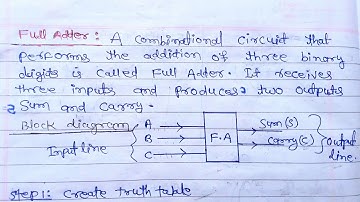 Full Adder: A combinational circuit that
performs the addition of three binary
digits is called Full Adder. It receives
three inputs and produces two outputs
Sum and carry.
Block diagram
A
B
C
Input line
F.A
Sum(S)
Carry(C)
Output
line.
Step 1: Create truth table